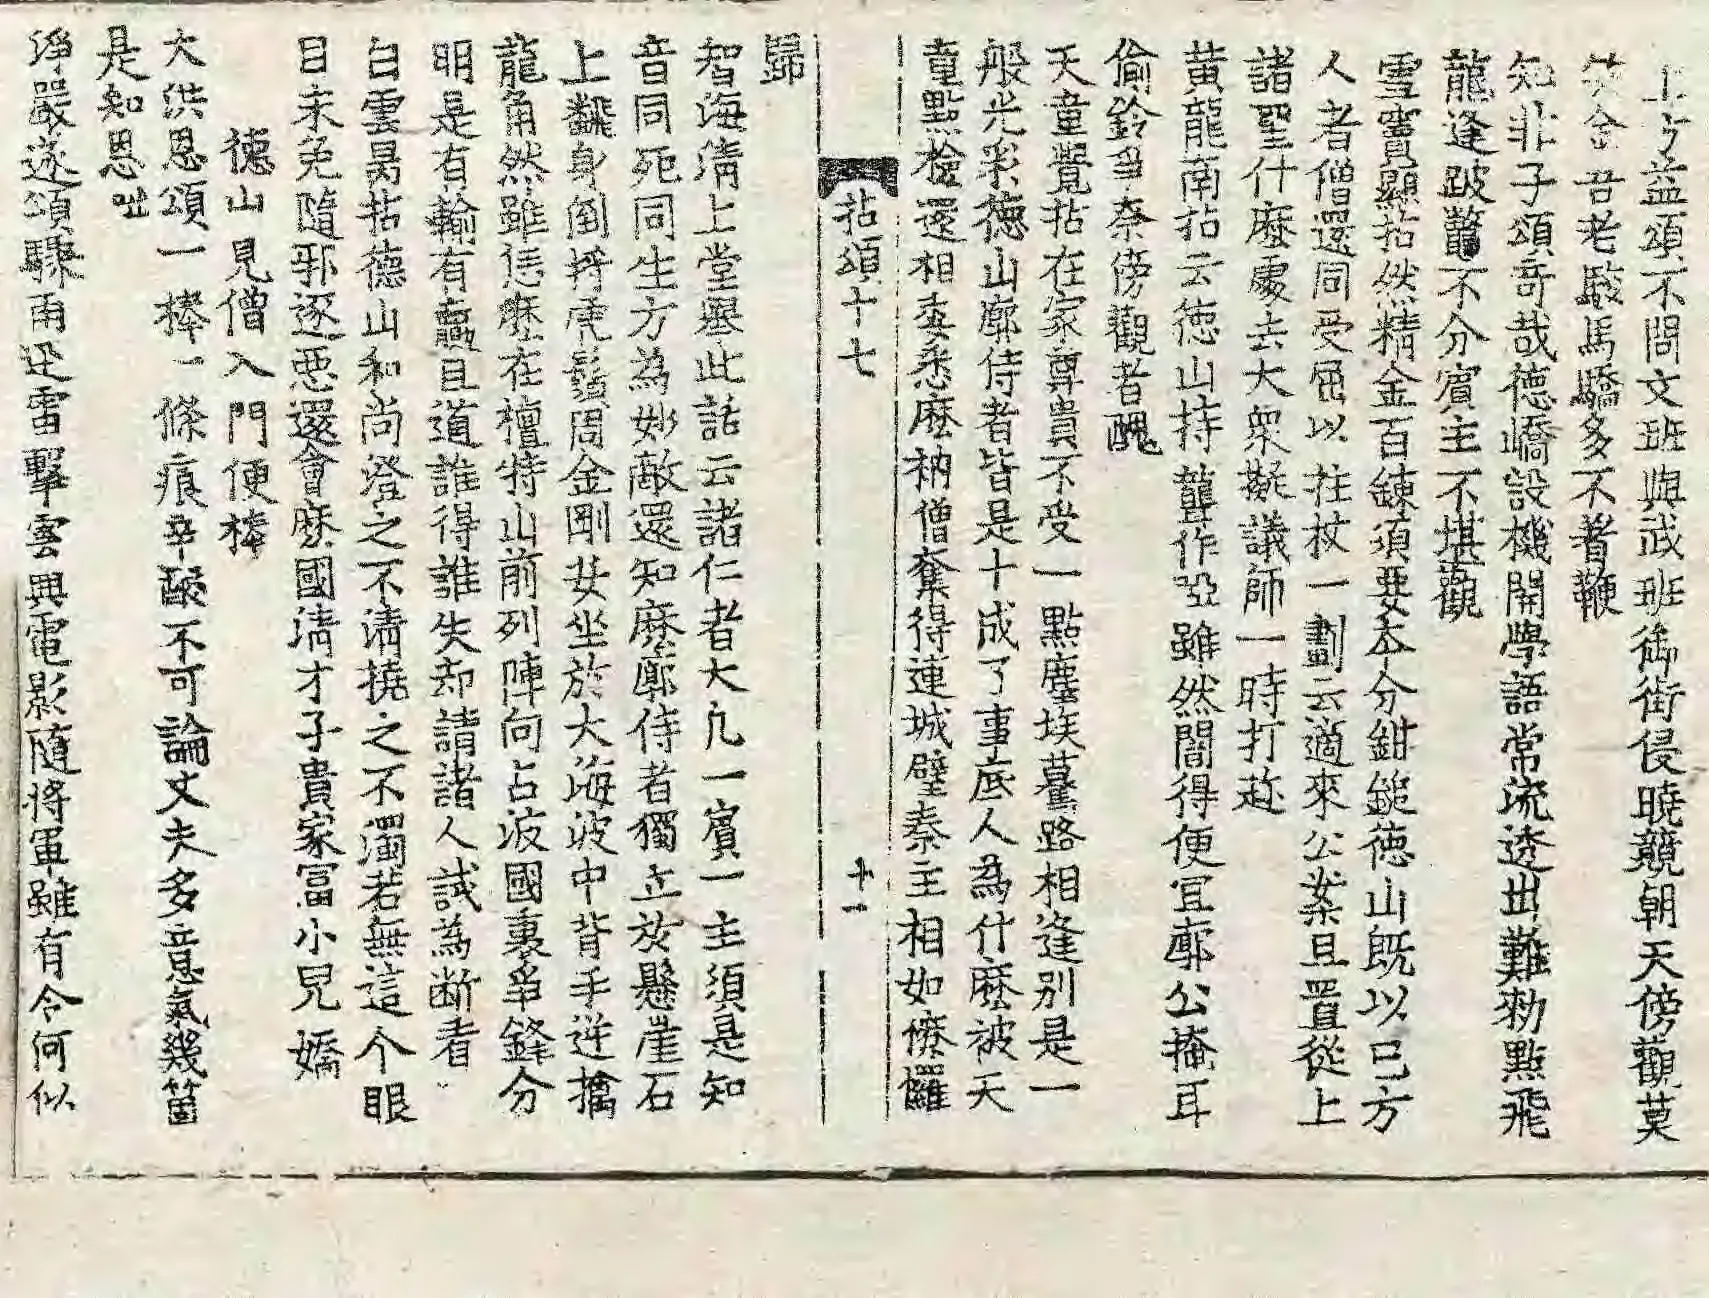 上方益頌不問文班與武班御街侵曉競朝天傍觀莫
笑金吾老駿馬驕多不著鞭
知非子頌奇哉德嶠設機開學語常流透出難勑點飛
龍逢跛鼈不分賓主不堪觀
雪竇顯拈然精金百鍊須要本分鉗鎚德山既以已方
人者僧還同受屈以拄杖一劃云適來公案且置從上
諸聖什麽處去大衆擬議師一時打趂
黃龍南拈云德山持聾作啞雖然闇得便宜廓公掩耳
偷鈴爭奈傍觀者醜
天童覺拈在家尊貴不受一點塵埃驀路相逢別是一
般光彩德山廓侍者皆是十成了事底人為什麽被天
童點檢還相委悉麽衲僧奪得連城璧秦主相如懡㦬
拈頌十七
十一
歸
智海清上堂舉此話云諸仁者大凡一賓一主須是知
音同死同生方為妙敵還知麽廓侍者獨立放懸崖石
上飜身倒捋虎鬚周金剛女坐於大海波中背手逆擒
龍角然雖恁麽在檀特山前列陣向占波國裏爭鋒分
明是有輸有贏且道誰得誰失却請諸人試為断看
白雲昺拈德山和尚澄之不淸撓之不濁若無這个眼
目未免隨邪逐惡還會麽國淸才子貴家富小兒嬌
德山見僧入門便棒
大洪恩頌一棒一條痕辛酸不可論丈夫多意氣幾箇
是知恩咄
淨嚴遂頌驟雨迅雷擊雲興電影隨將軍雖有令何似